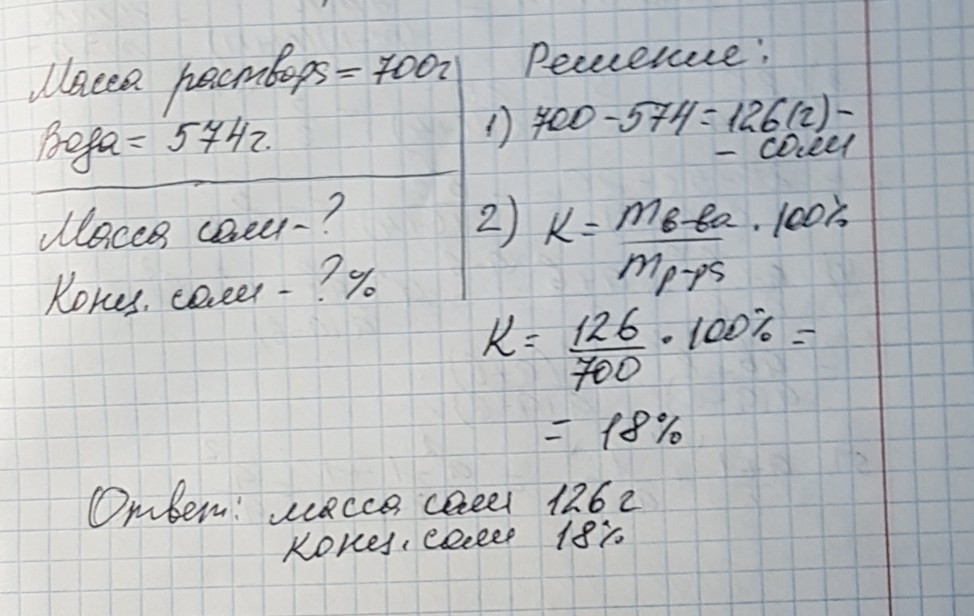 Масса раствора = 700г
Вода = 574г.
Масса соли - ?
Конц. соли - ?%
Решение:
1) 700 - 574 = 126(г) -
- соли
2) K = mв-ва / mр-ра · 100%
K = 126/700 · 100% =
= 18%
Ответ: масса соли 126г
конц. соли 18%